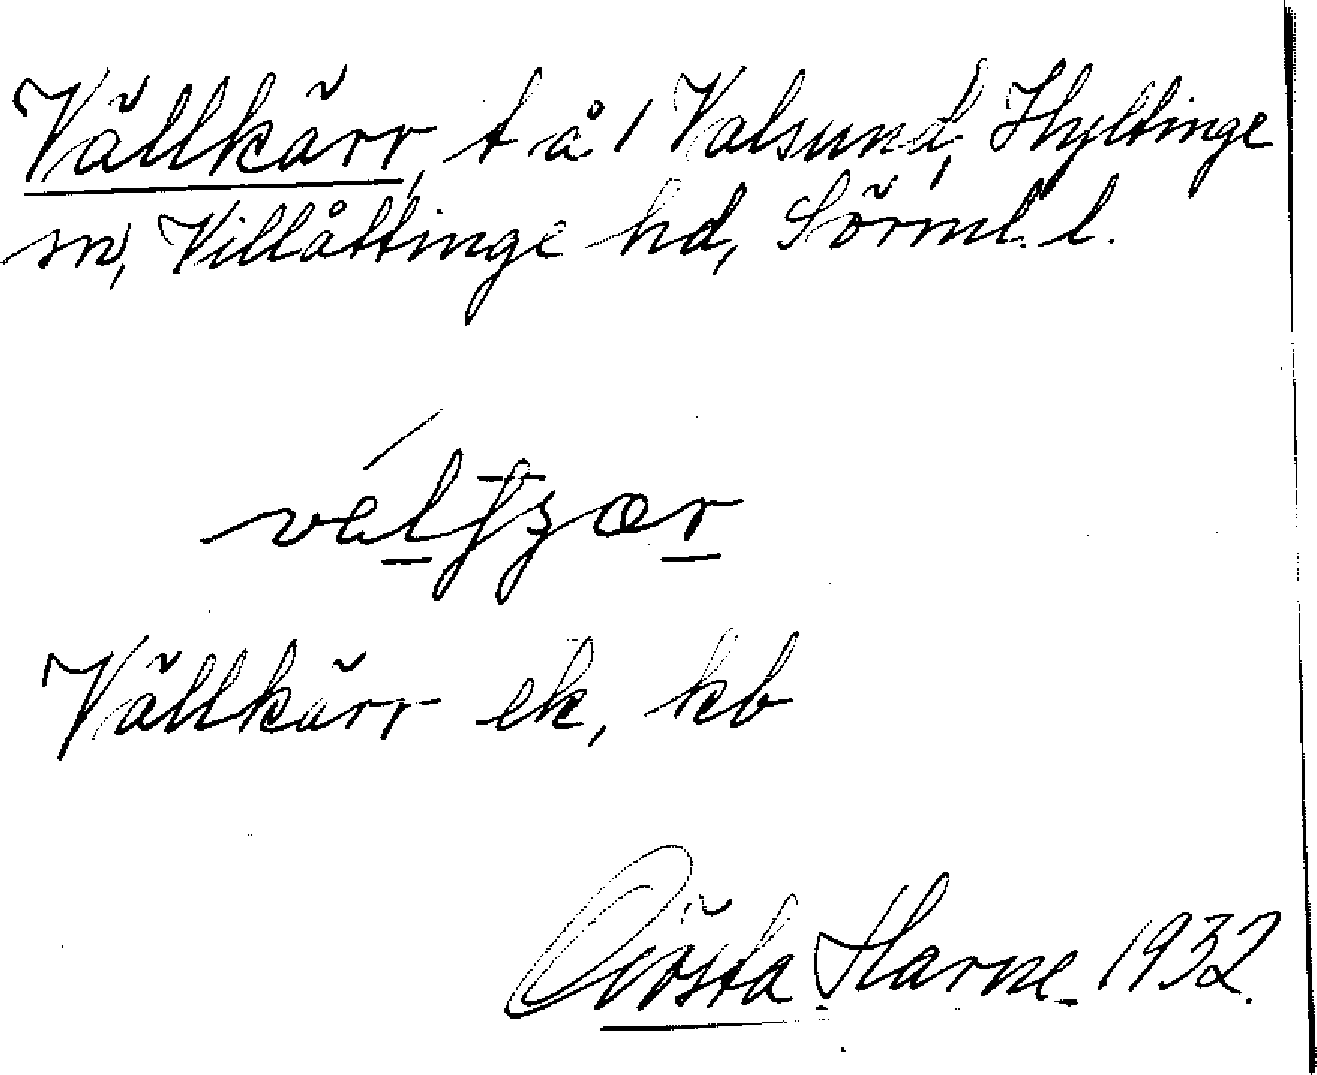 Vällkärr, t å 1 Valsund, Hyltinge
sn, Villåttinge hd, Sörml. l.
Vällkärr ek, kb
Gösta Harne 1932.